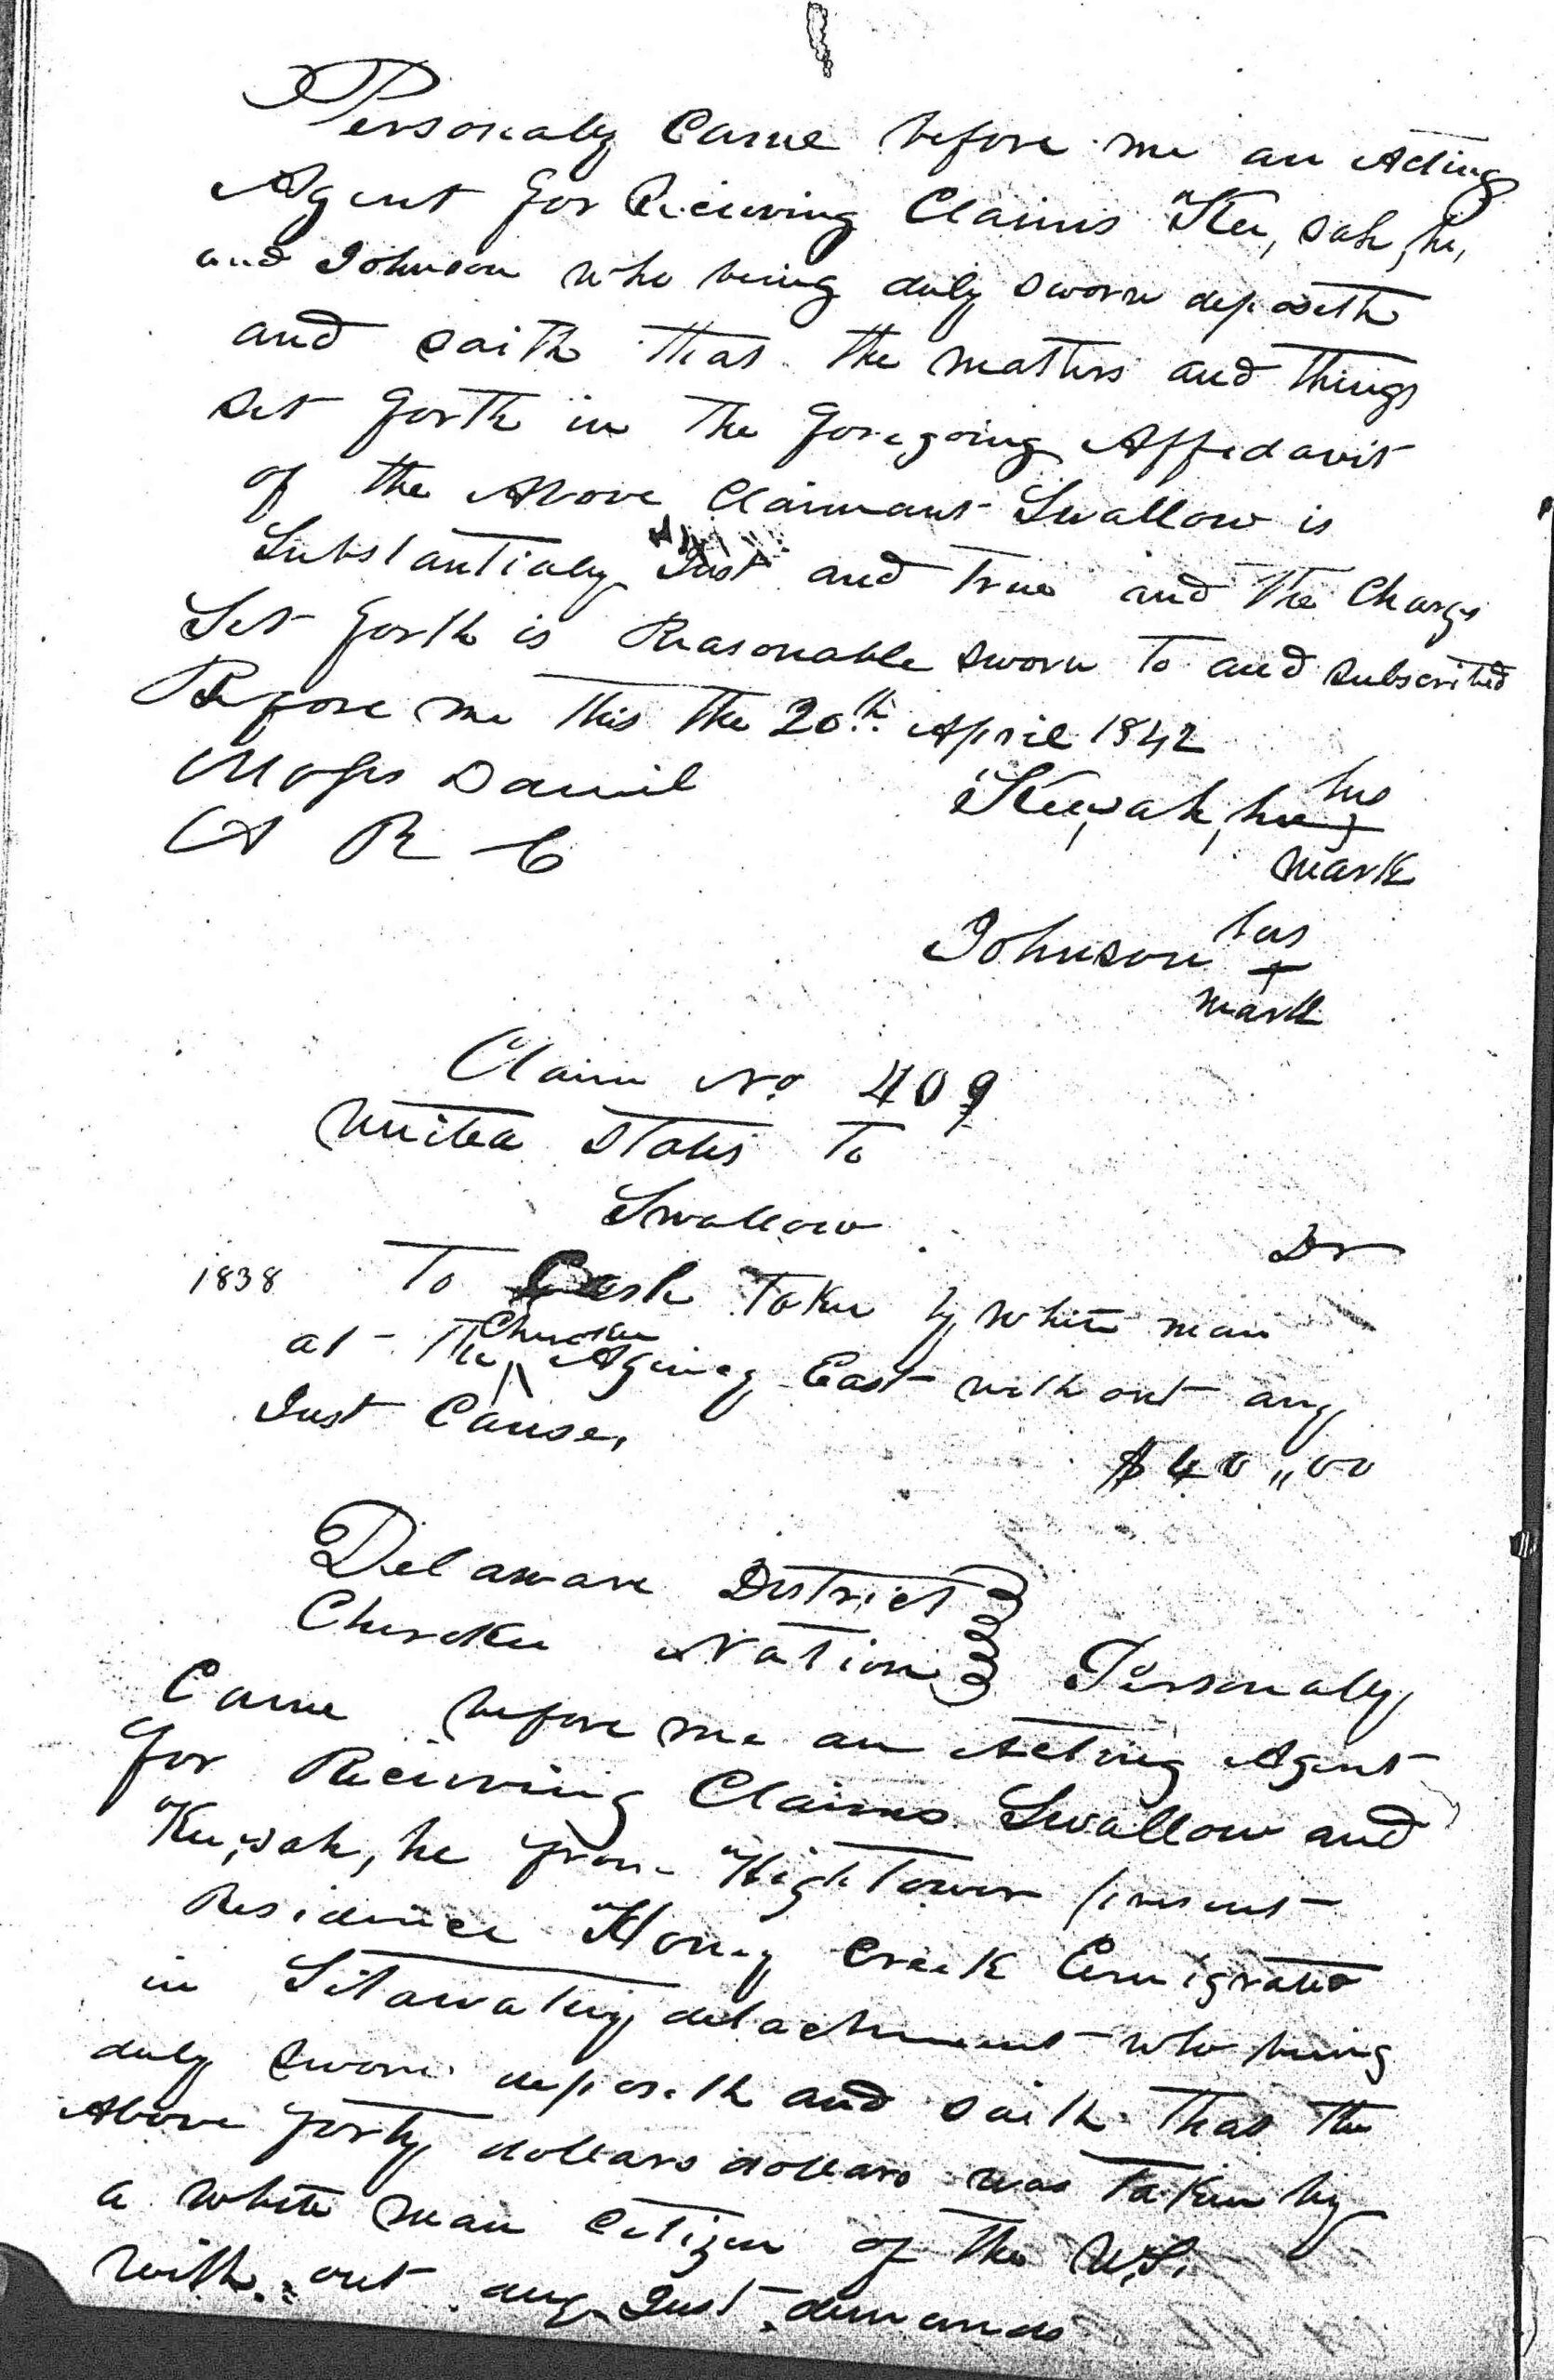 Personaly Came before me an Acting
Agent for Recieving Claims Kee, sah, he,
and Johnson who being duly sworn deposeth
and saith that the matters and things
set forth in the foregoing Affedavit
of the Above Claimant Swallow is
Substantialy Just and true and the Charge
Set forth is Reasonable sworn to and subscribed
Before me this the 20th April 1842
Moses Daniel
A R C
Kee,sah,he his
+
mark
Johnson his
+
mark
Claim No 409
United States To
Swallow
Dr
1838 To Cash Taken by white man
at the Cherokee Agency East with out any
Just Cause,
$40,,00
Delaware District
Cherokee Nation Personaly
Came before me an Acting Agent
for Recieving Claims Swallow and
Kee,sah,he from High Tower present
Residence Honey Creek Emigrated
in Sitawakey detachment who being
duly sworn deposeth and saith that the
Above forty dollars dollars was taken by
a white man Citizen of the U.S.
with out any Just demands